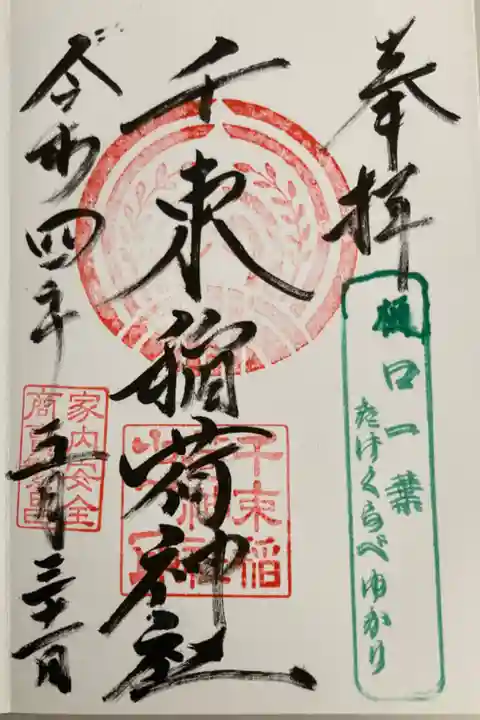 奉拝
樋口一葉
たけくらべゆかり
千束稲荷神社
千束稲
荷神社
家内安全
商売繁昌
令和四年 五月三十一日